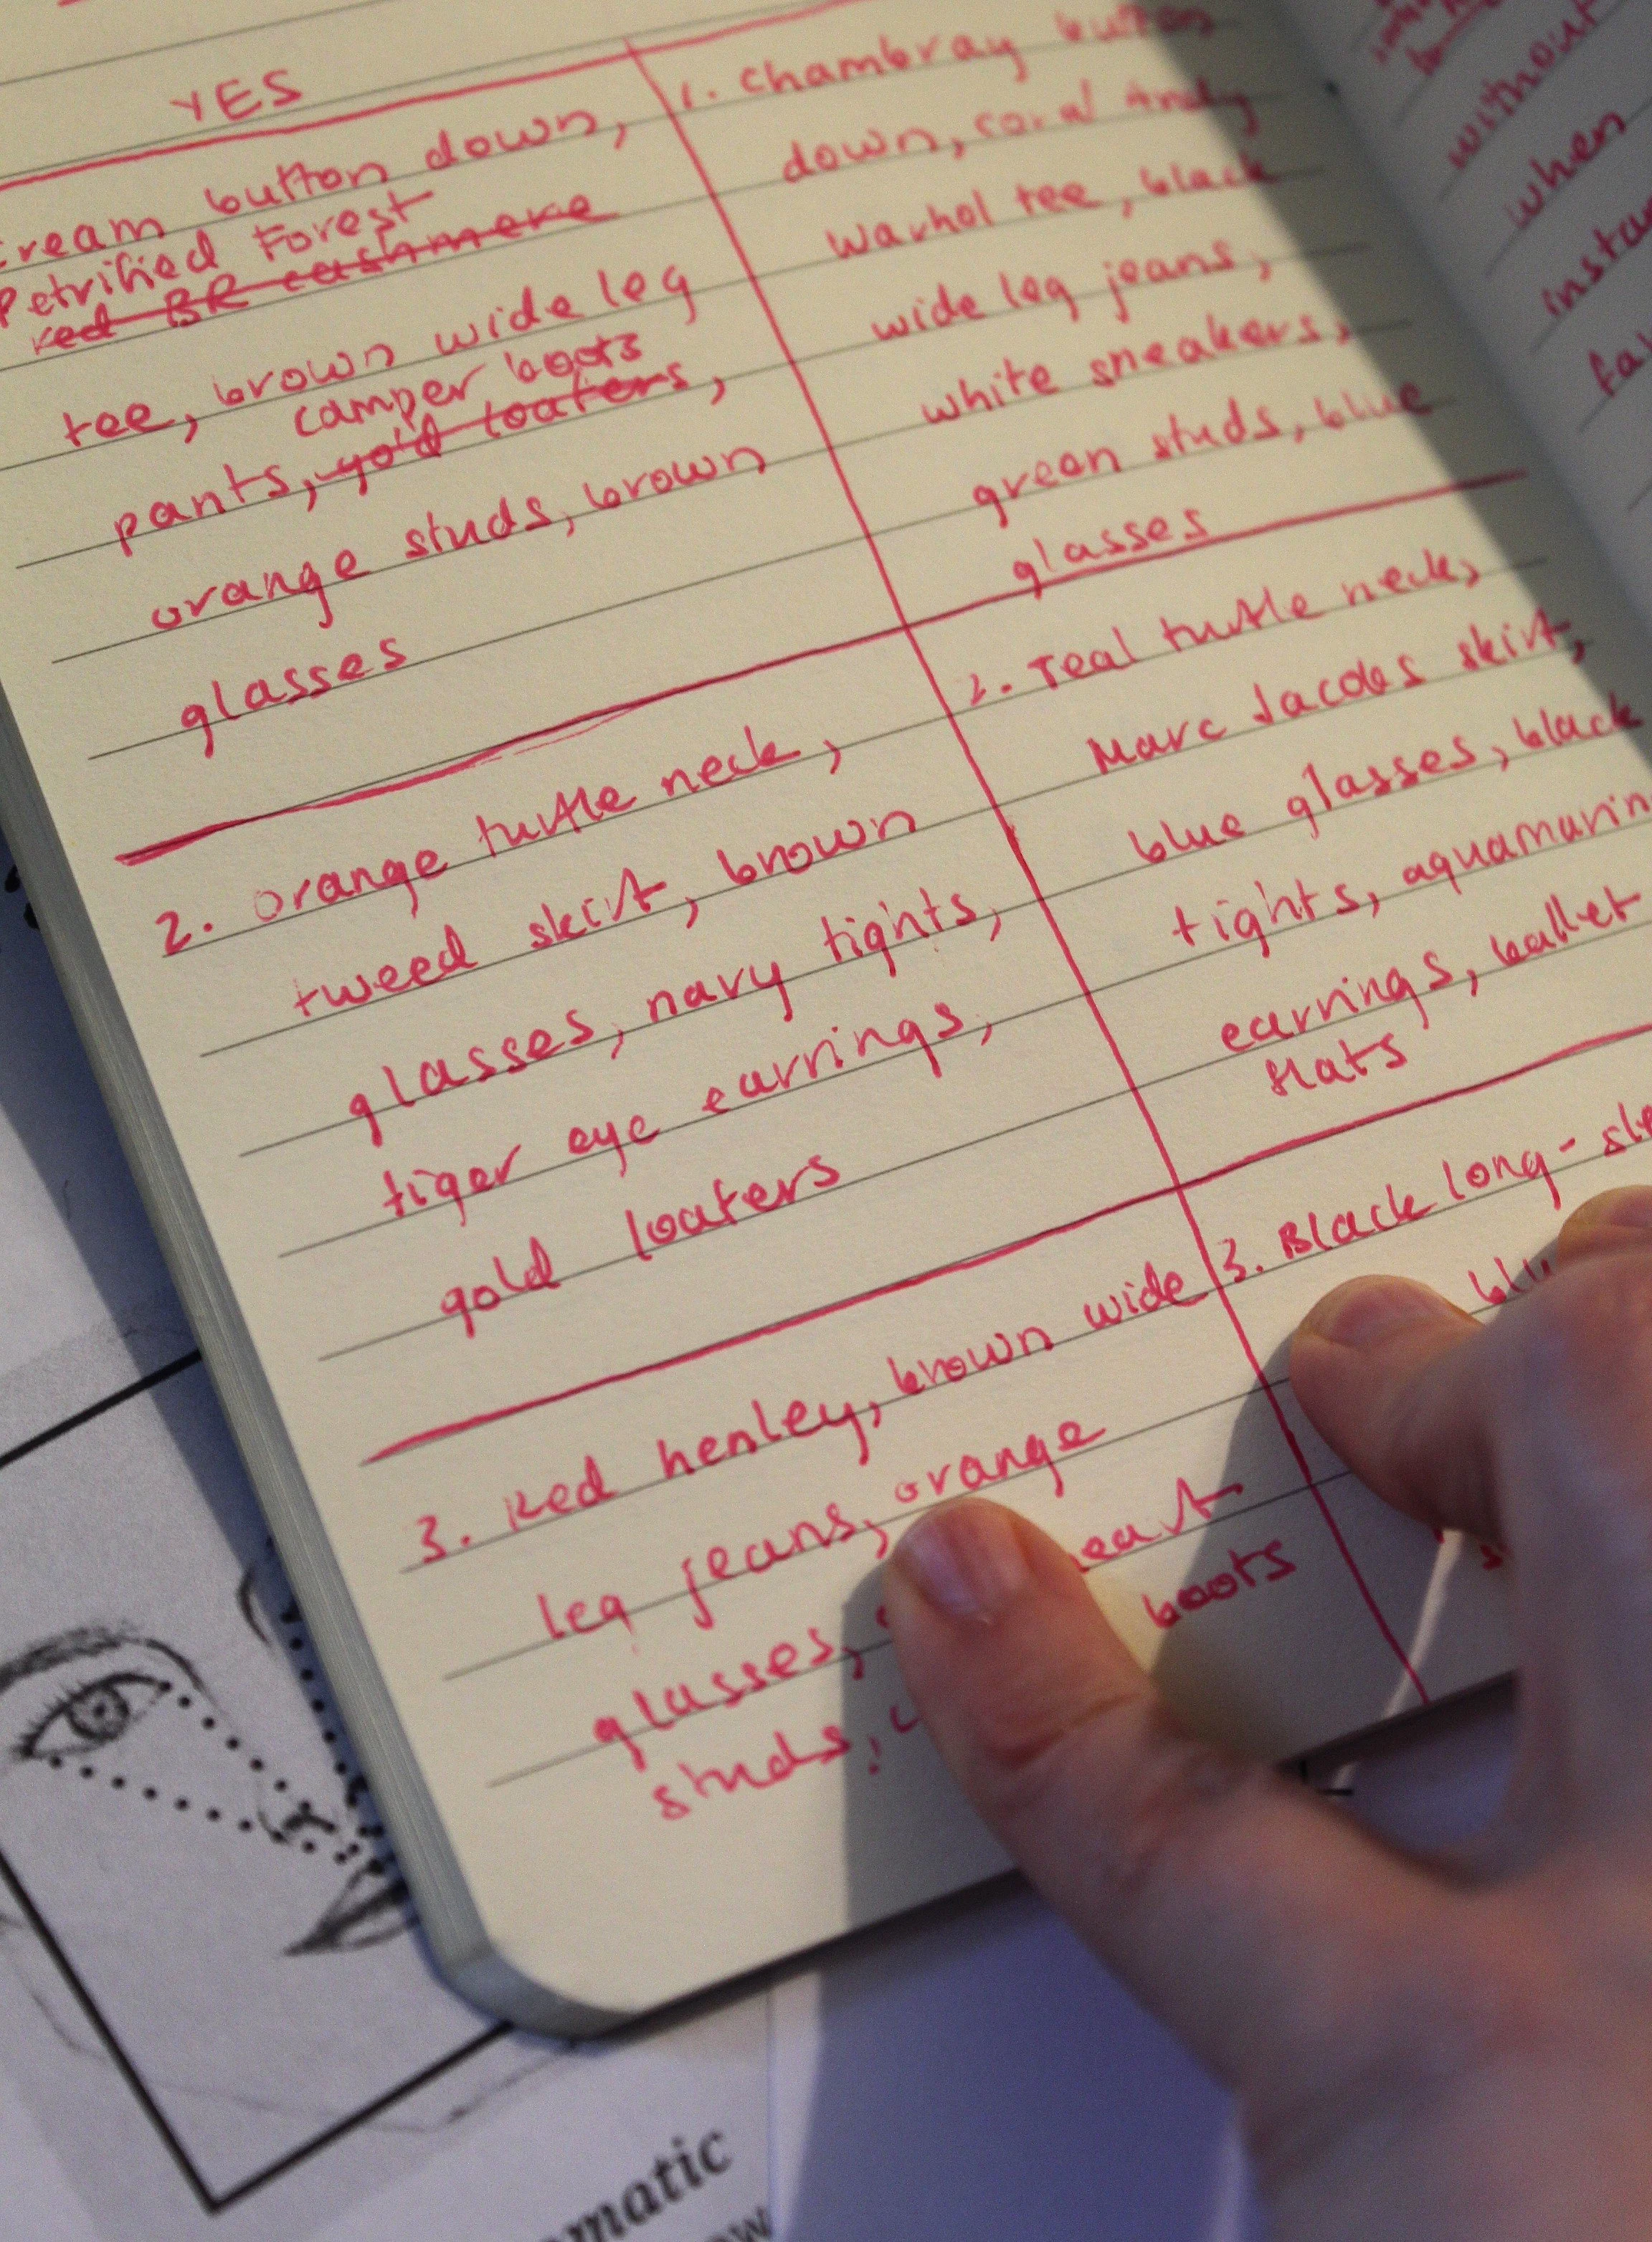 YES
cream button down,
Petrified Forest
red BR cashmere
tee, brown wide leg
camper boots
pants, gold loafers,
orange studs, brown
glasses
2. orange turtle neck,
tweed skirt, brown
glasses, navy tights,
tiger eye earrings,
gold loafers
3. Red henley, brown wide
leg jeans, orange
glasses, heart
studs, boots
1. Chambray button
down, coral Andy
Warhol tee, black
wide leg jeans,
white sneakers,
green studs, blue
glasses
2. Teal turtle neck,
Marc Jacobs skirt,
blue glasses, black
tights, aquamarin
earrings, ballet
flats
3. Black long-sle
blu
without
when
insta
fal
matic
ow